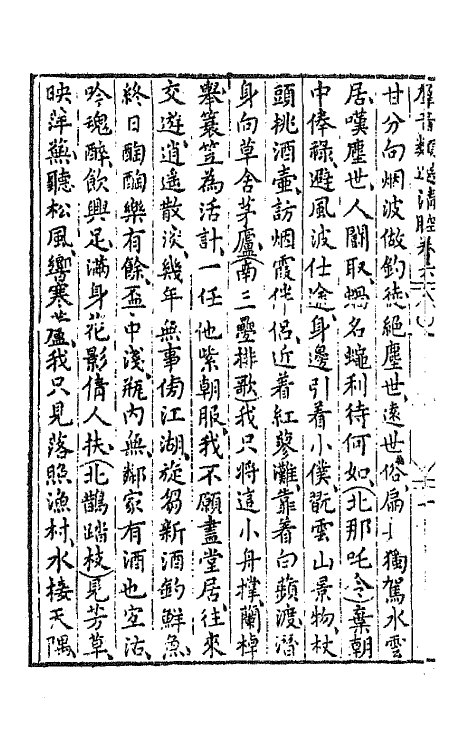 羣音類選清腔卷六
甘分向烟波做釣徒絕塵世遠世俗扁舟獨駕水雲
居嘆塵世人閙取蝸名蠅利待何如(北那吒令)棄朝
中俸祿避風波仕途身邊引着小僕翫雲山景物杖
頭挑酒壺訪烟霞伴侶近着紅蓼灘靠着白蘋渡潛
身向草舍茅廬(南三疊排歌)我只將這小舟撑蘭棹
舉蓑笠為活計一任他紫朝服我不願畫堂居往來
交遊逍遙散淡幾年無事傍江湖旋篘新酒釣鮮魚
終日酶酶樂有餘盃中淺瓶內無鄰家有酒也宜沽
吟魂醉飲興足滿身花影倩人扶(北鵲踏枝)見芳草
映萍蕪聽松風響寒蘆我只見落照漁村水接天隅